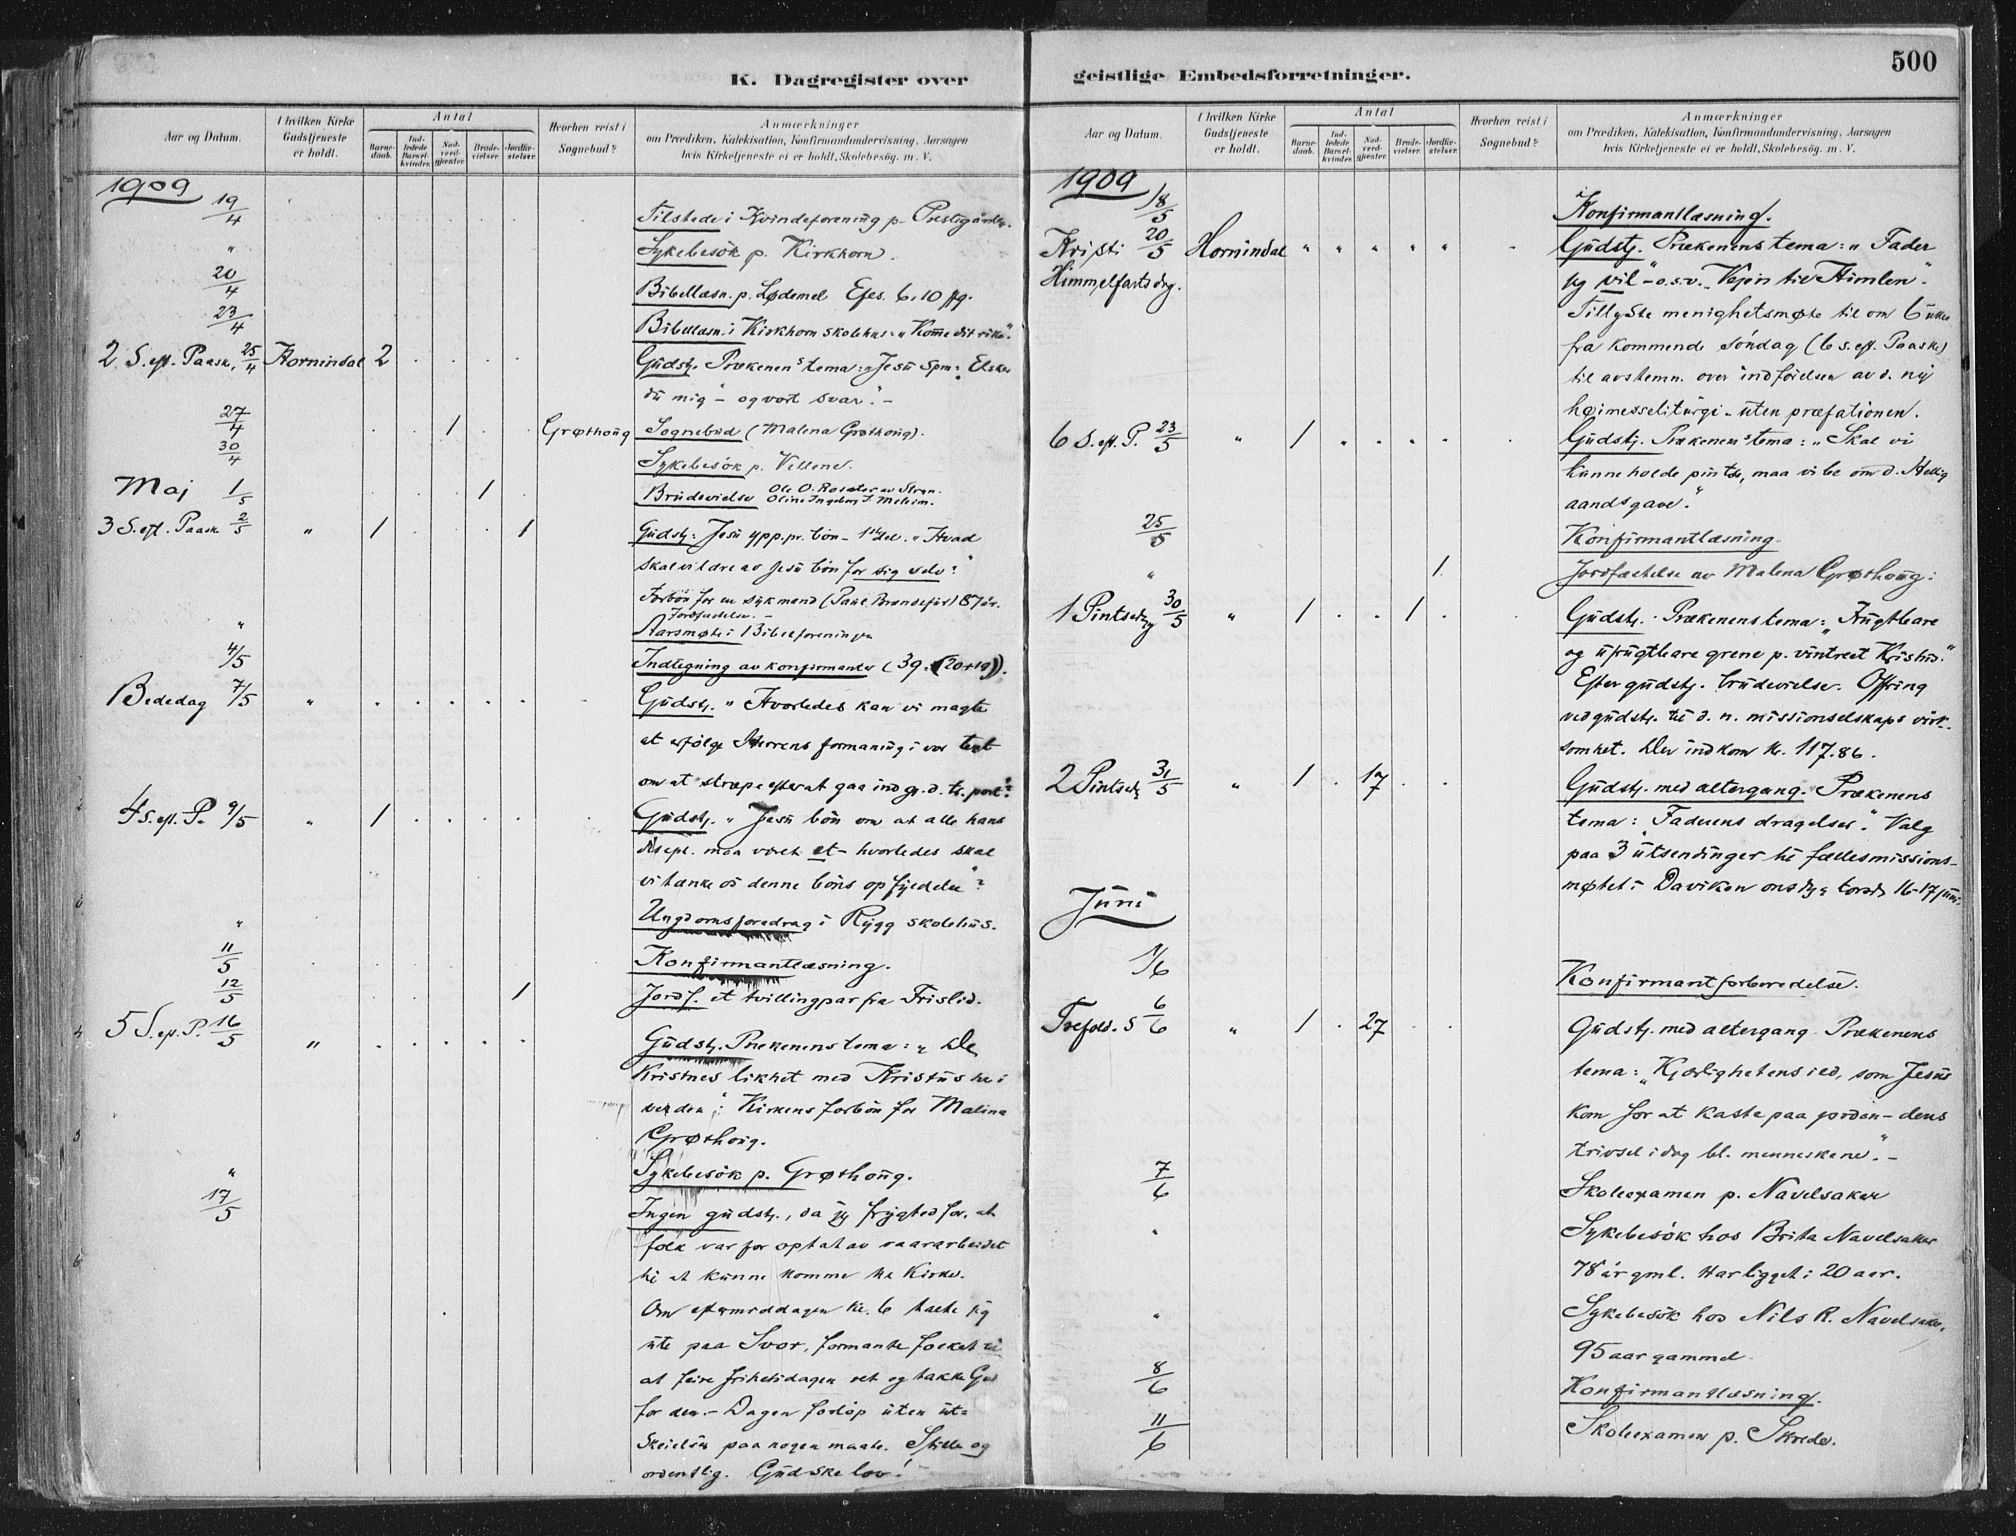 K. Dagregister over
Aar og Datum.
I hvilken Kirke Gudstjeneste er holdt.
Antal
Barnedaab.
Indledede Barselkvinder.
Nadverdgjester.
Brudevielser.
Jordfæstelser.
Hvorhen reist i Sognebud?
Anmærkninger
om Prædiken, Katekisation, Konfirmandundervisning, Aarsagen
hvis Kirketjeneste ei er holdt, Skolebesøg. m. V.
1909
19/4 Tilstede i Kvindeforening p. Prestegården.
" Sykebesök p. Kirkhorn.
20/4 Bibellæsn. p. Lødemel Efes. 6, 10 ffg.
23/4 Bibellæsn. i Kirkhorn skolehus: "Komme dit rike".
2 S. eft. Paask. 25/4 Hornindal 2 Gudstj. Prækenens tema: "Jesu Spm: Elsker
du mig" - og vort svar". -
27/4 1 Grøthoug Sognebud (Malena Grøthoug).
30/4 Sykebesök p.
Maj 1/5 1 Brudevielse Ole O.
3 S. eft. Paask 2/5 " 1 1 Gudstj: Jesu ypp.pr. bön - 1ste del. "Hvad
skal vi lære av Jesu bön for sig selv?"
Forbön for en syk mand 87 år.
Jordfæstelse. -
" Aarsmøte i Bibelforeningen
4/5 Indtegning av konfirmanter (39. (20+19)).
Bededag 7/5 " Gudstj. "Hvorledes kan vi magte
at efölge Herrens formaning i vor text
om at stræpe efter at gaa ind gj. d. tr. port?"
4 S. eft. P. 9/5 " 1 Gudstj. "Jesu bön om at alle hans
disepl. maa være et - hvorledes skal
vi tænke os denne böns opfyldelse"?
" Ungdomsforedrag i Rygg skolehus.
11/5 Konfirmantlæsning.
12/5 1 Jordf. et tvillingpar fra Frislid.
5 S. eft. P. 16/5 " Gudstj. Prækenens tema: "De
Kristnes likhet med Kristus her i
verden": Kirkens forbön for Malina
Grøthoug.
" Sykebesök p. Grøthoug.
17/5 Ingen gudstj., da jeg frygted for, at
folk var for optat av vaararbeidet
til at kunne komme til Kirke.
Om eftermiddagen kl. 6 talte jeg
ute paa Svor, formante folket til
at feire frihetsdagen ret og takke Gud
for den. - Dagen forløp uten ut-
skeielser paa nogen maate. Stille og
ordentlig. Gud ske lov!
geistlige Embedsforretninger.
500
Aar og Datum.
I hvilken Kirke Gudstjeneste er holdt.
Antal
Barnedaab.
Indledede Barselkvinder.
Nadverdgjester.
Brudevielser.
Jordfæstelser.
Hvorhen reist i Sognebud?
Anmærkninger
om Prædiken, Katekisation, Konfirmandundervisning, Aarsagen
hvis Kirketjeneste ei er holdt, Skolebesøg. m. V.
1909
18/5 Konfirmantlæsning.
Kristi 20/5 Hornindal " " " " " Gudstj. Prækenens tema: "Fader
Himmelfartsdag. jeg vil" - o.s.v. "Vejen til Himlen".
Tillyste menighetsmøte til om 6 uker
fra kommende söndag (6 s. eft. Paaske)
til avstemn. over indförelsen av d. ny
høimesseliturgi - uten præfationen.
6 S. eft. P. 23/5 " 1 Gudstj. Prækenens tema: "Skal vi
kunne holde pintse, maa vi be om d. Hellig
aands gave."
25/5 Konfirmantlæsning.
" 1 Jordfæstelse av Malena Grøthoug.
1 Pintsedag 30/5 " 1 1 Gudstj. Prækenens tema: "Frugtbare
og ufrugtbare grene p. vintreet Kristus."
Efter gudstj. brudevielse. Offring
ved gudstj. til d. n. missionselskaps virk-
somhet. Der indkom kr. 117.86.
2 Pintsed. 31/5 " 1 17 Gudstj. med altergang. Prækenens
tema: "Faderens dragelser". Valg
paa 3 utsendinger til fællesmissions-
møtet i Daviken onsdg. & torsd. 16-17 juni.
Juni
1/6 Konfirmantforberedelse.
Trefold. S 6/6 " 1 27 Gudstj. med altergang Prækenens
tema: "Kjærlighetens ild, som Jesus
kom for at kaste paa jorden - dens
trivsel idag bl. menneskene". -
7/6 Skoleexamen p. Navelsaker
" Sykebesök hos Brita Navelsaker
78 år gml. Har ligget i 20 aar.
" Sykebesök hos Nils R. Navelsaker,
95 aar gammel.
8/6 Konfirmantlæsning.
11/6 Skoleexamen p. Skrede.